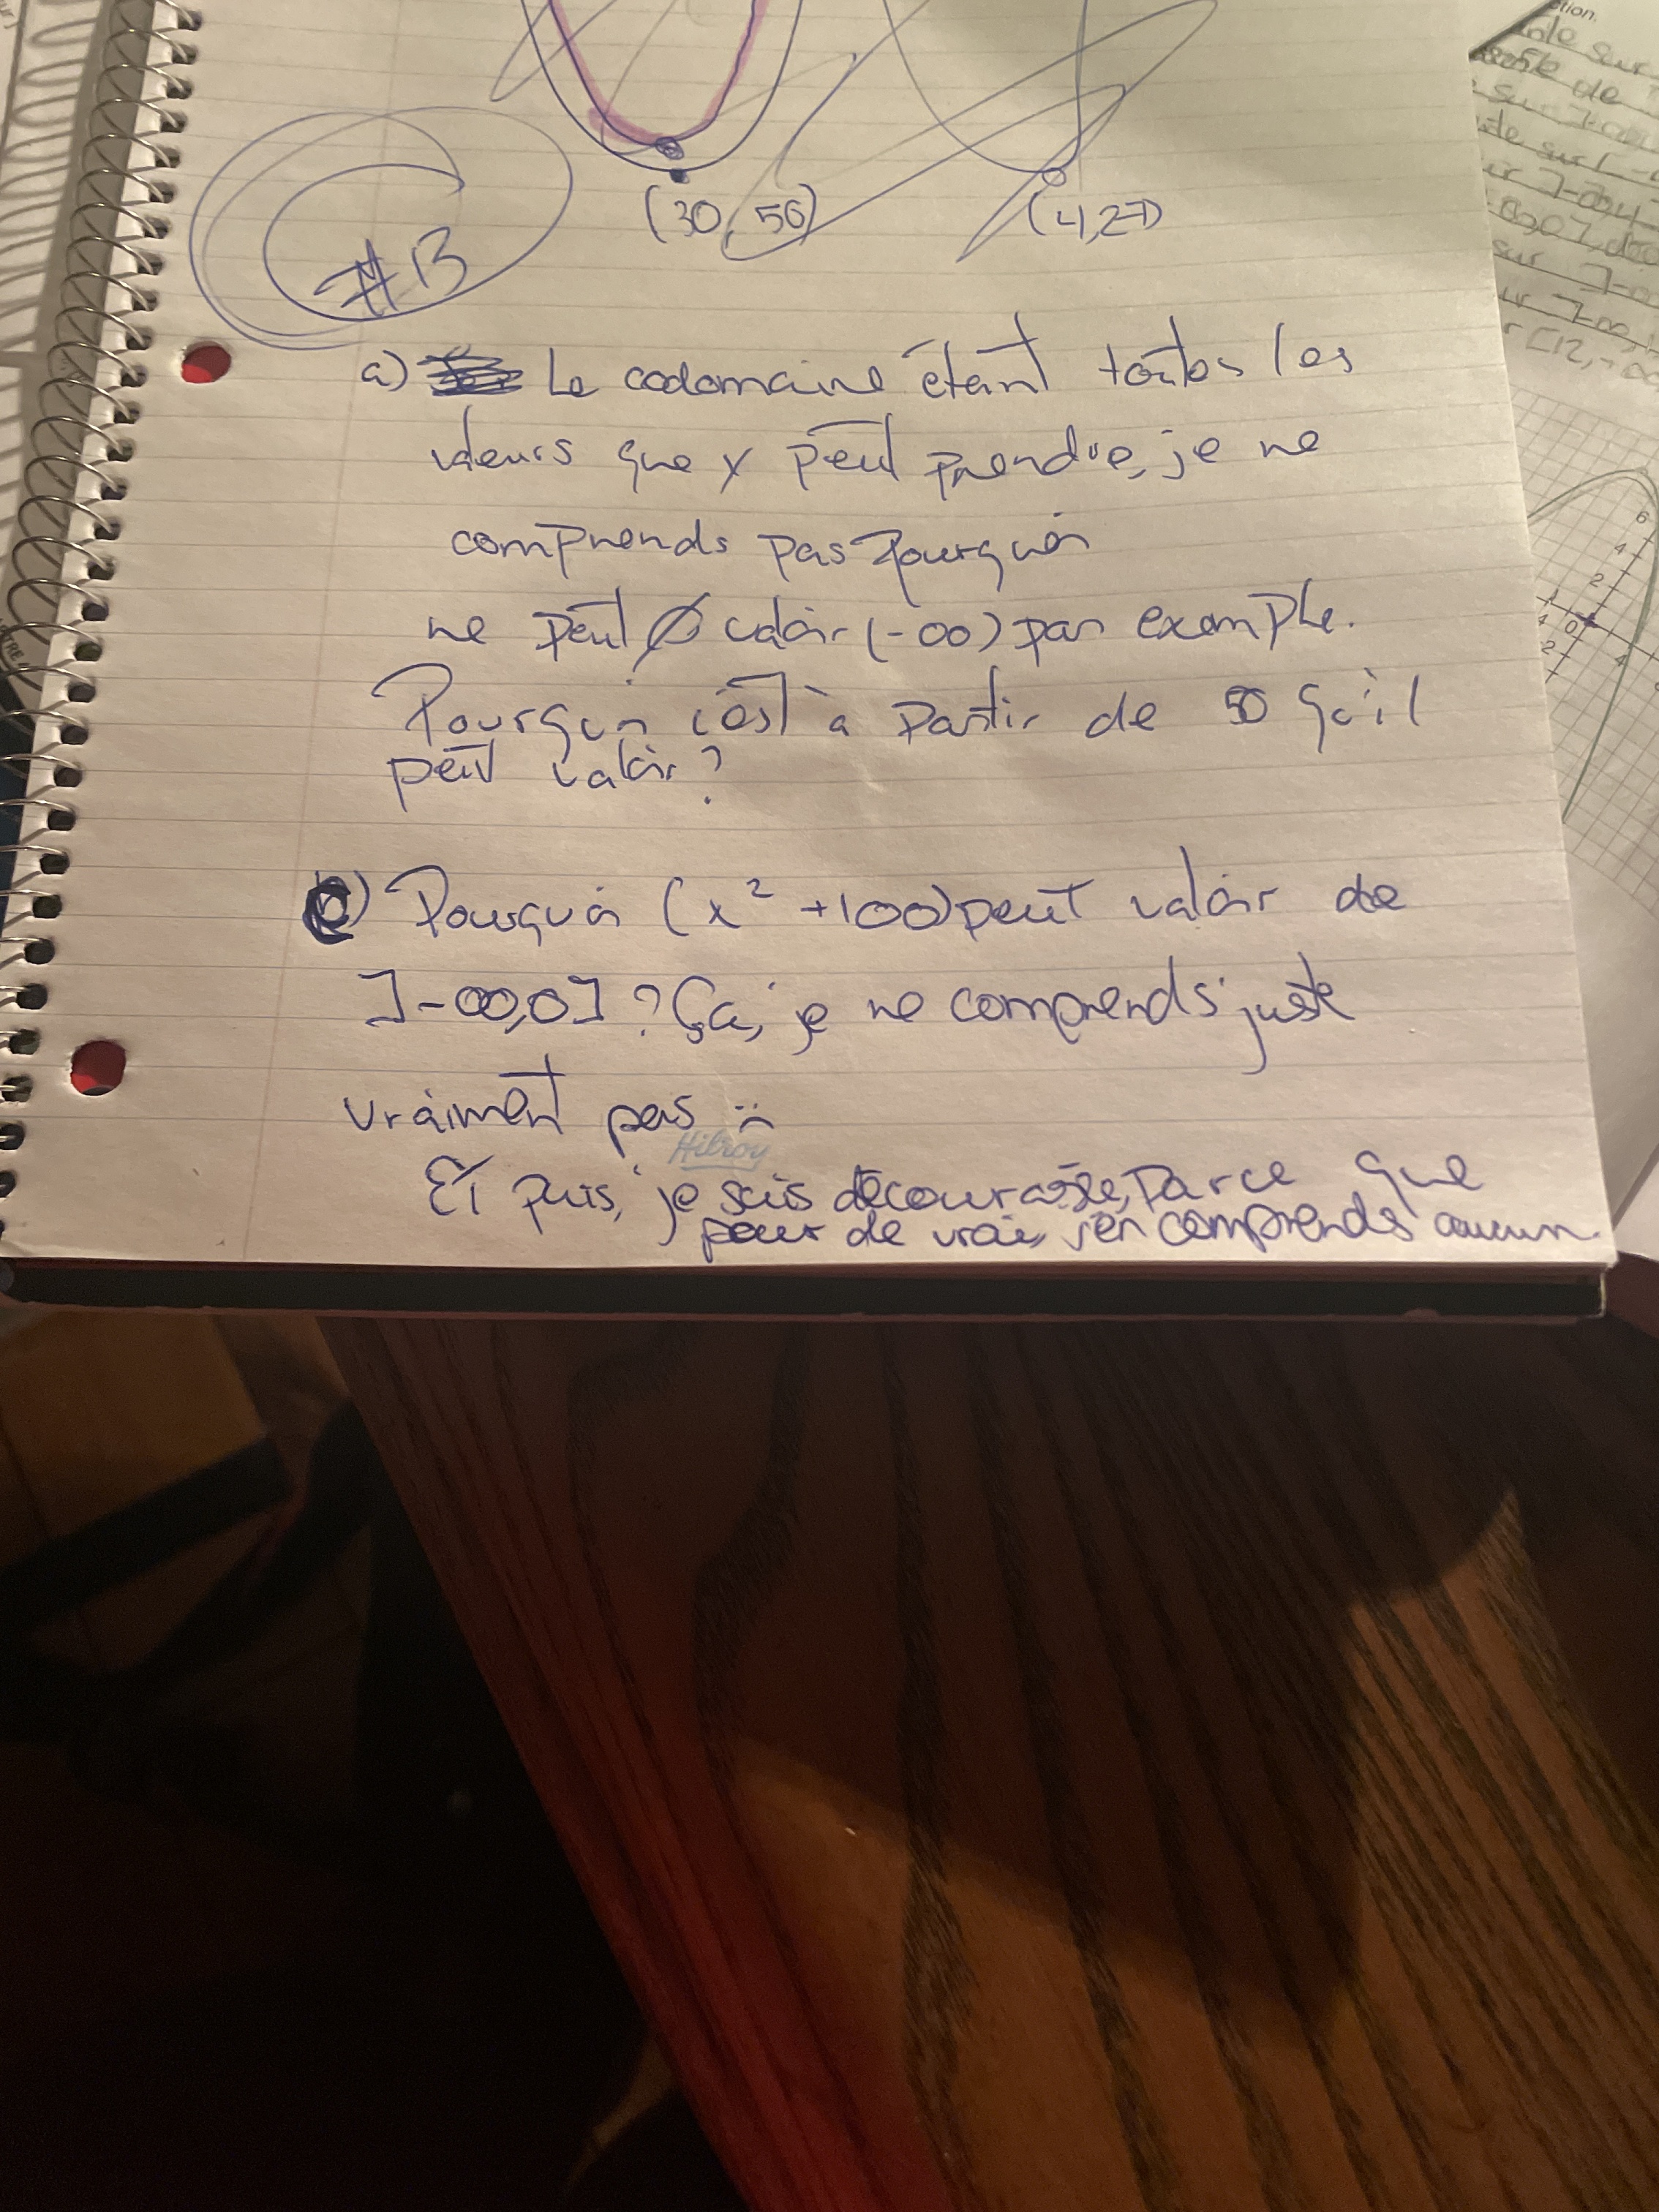 (30, 50) (4,27)
#13
a) Le codomaine étant toutes les
valeurs que y peut prendre, je ne
comprends pas pourquoi
ne peut Ø valoir (-∞) par exemple.
Pourquoi c'est à partir de 50 qu'il
peut valoir?
c) Pourquoi (x² +100) peut valoir de
]-∞,0] ? Ça, je ne comprends juste
vraiment pas :(
Hilroy
Et puis, je suis découragée, parce que
pour de vrai, j'en comprends aucun.